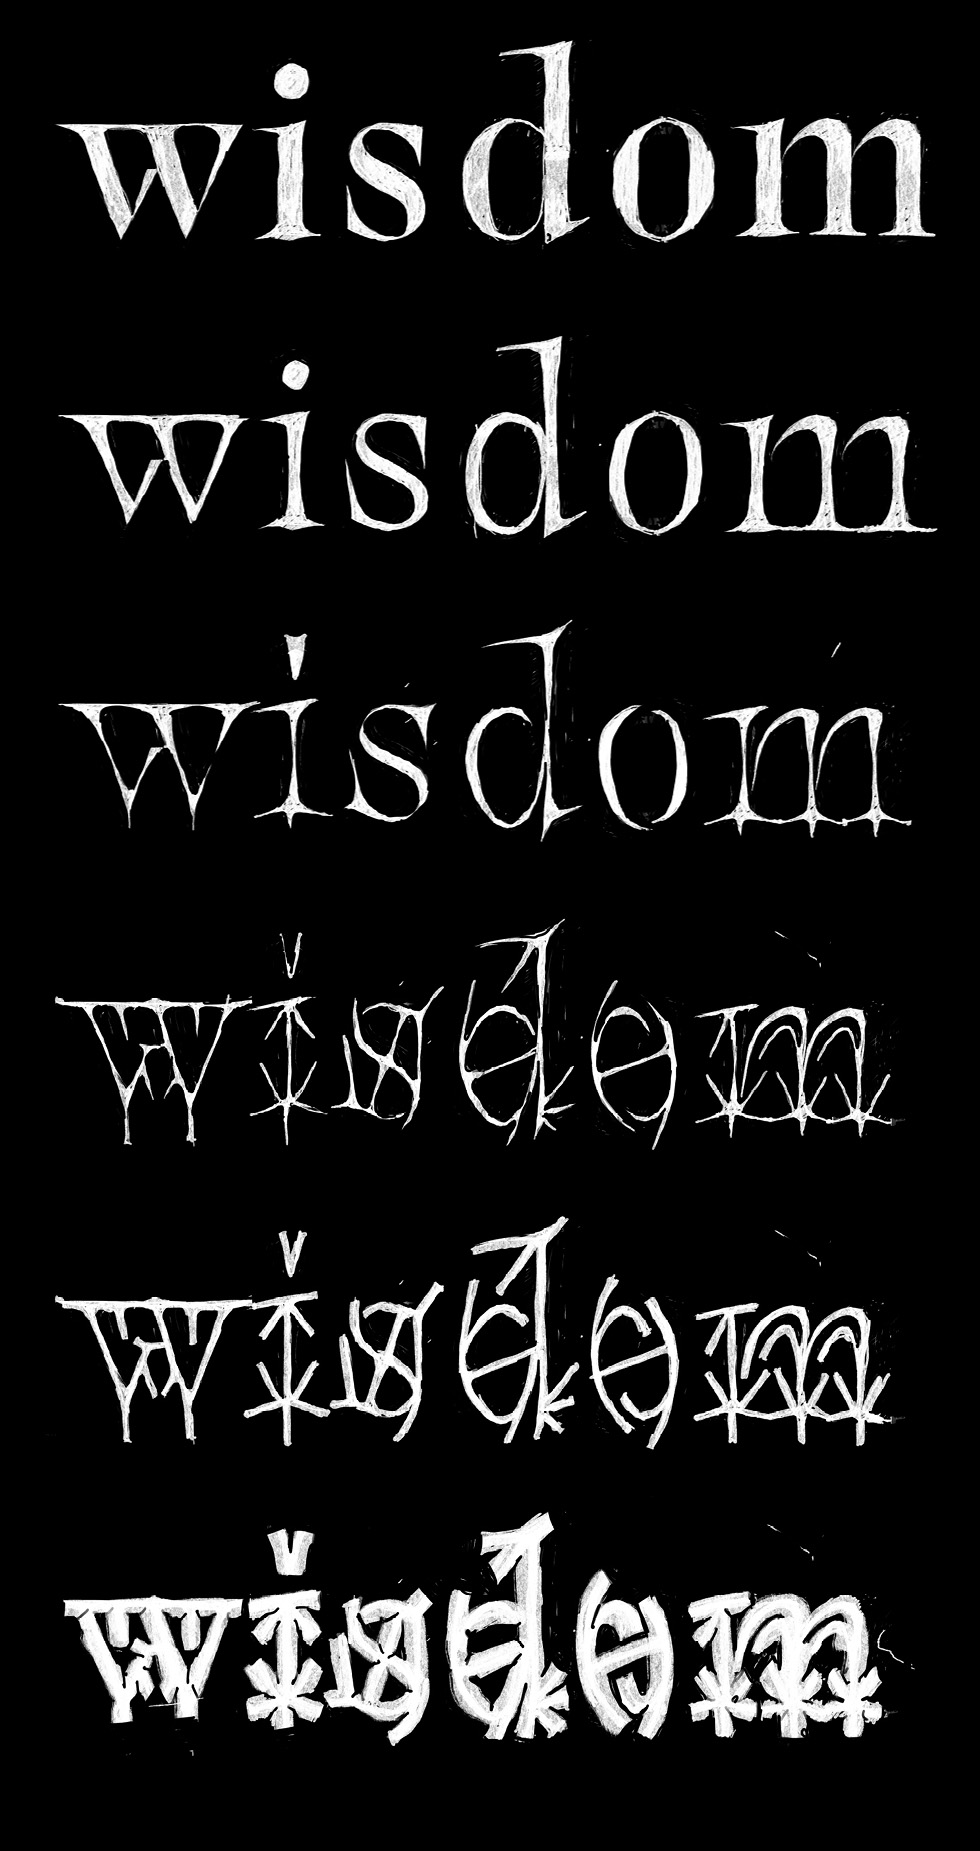 wisdom
wisdom
wisdom
wisdom
wisdom
wisdom